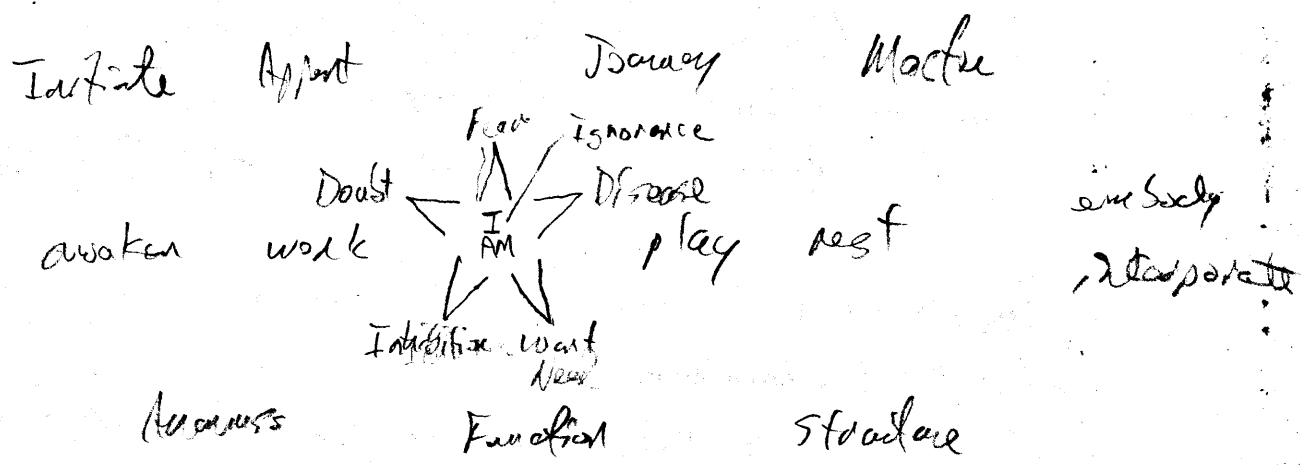 Initiate Appent Journey Master
Fear Ignorance
Doubt Disease
I
AM
embody
awaken work play rest
incorporate
Inhibition want
Need
Awareness Function Structure